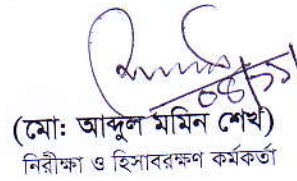 (মো: আব্দুল মমিন শেখ)
নিরীক্ষা ও হিসাবরক্ষণ কর্মকর্তা